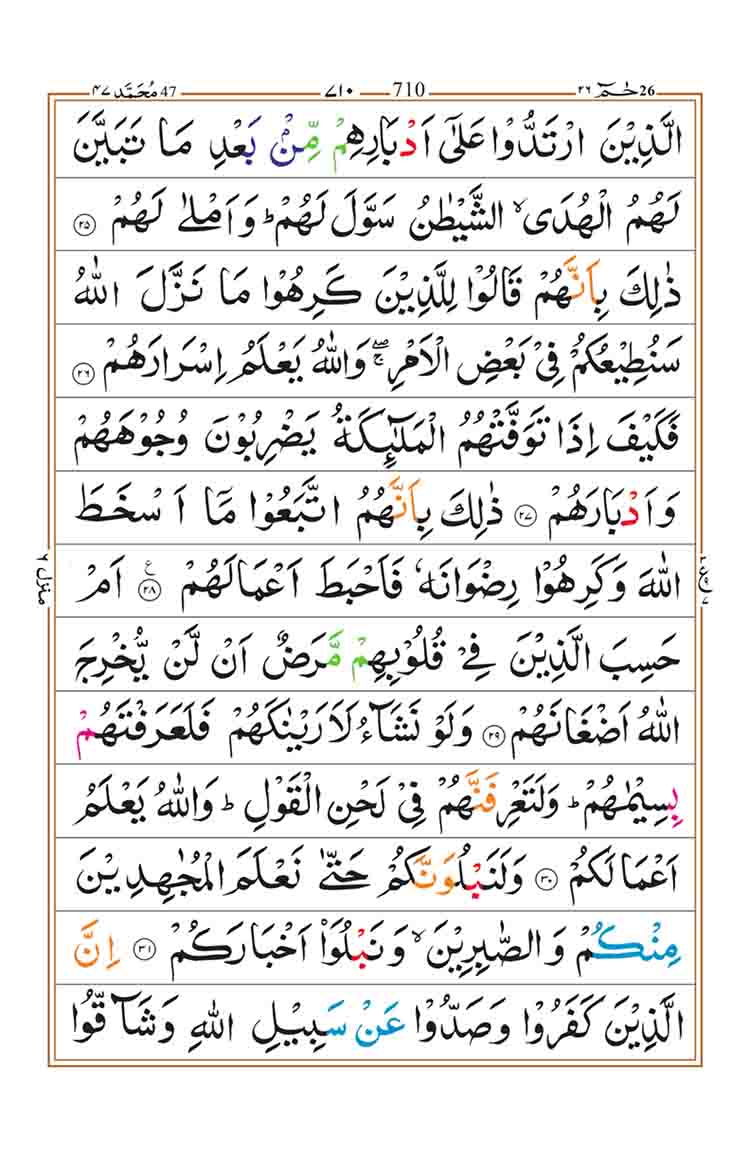 26 حٰمٓ ۲۶ 710 ۷۱۰ 47 مُحَمَّد ۴۷
الَّذِيْنَ ارْتَدُّوْا عَلٰٓى اَدْبَارِهِمْ مِّنْۢ بَعْدِ مَا تَبَيَّنَ
لَهُمُ الْهُدَى ۙ الشَّيْطٰنُ سَوَّلَ لَهُمْ ؕ وَاَمْلٰى لَهُمْ ۲۵
ذٰلِكَ بِاَنَّهُمْ قَالُوْا لِلَّذِيْنَ كَرِهُوْا مَا نَزَّلَ اللّٰهُ
سَنُطِيْعُكُمْ فِيْ بَعْضِ الْاَمْرِ ۖۚ وَاللّٰهُ يَعْلَمُ اِسْرَارَهُمْ ۲۶
فَكَيْفَ اِذَا تَوَفَّتْهُمُ الْمَلٰٓئِكَةُ يَضْرِبُوْنَ وُجُوْهَهُمْ
وَاَدْبَارَهُمْ ۲۷ ذٰلِكَ بِاَنَّهُمُ اتَّبَعُوْا مَاۤ اَسْخَطَ
اللّٰهَ وَكَرِهُوْا رِضْوَانَهٗ فَاَحْبَطَ اَعْمَالَهُمْ ۲۸ ع اَمْ
حَسِبَ الَّذِيْنَ فِيْ قُلُوْبِهِمْ مَّرَضٌ اَنْ لَّنْ يُّخْرِجَ
اللّٰهُ اَضْغَانَهُمْ ۲۹ وَلَوْ نَشَآءُ لَاَرَيْنٰكَهُمْ فَلَعَرَفْتَهُمْ
بِسِيْمٰهُمْ ؕ وَلَتَعْرِفَنَّهُمْ فِيْ لَحْنِ الْقَوْلِ ؕ وَاللّٰهُ يَعْلَمُ
اَعْمَالَكُمْ ۳۰ وَلَنَبْلُوَنَّكُمْ حَتّٰى نَعْلَمَ الْمُجٰهِدِيْنَ
مِنْكُمْ وَالصّٰبِرِيْنَ ۙ وَنَبْلُوَا۟ اَخْبَارَكُمْ ۳۱ اِنَّ
الَّذِيْنَ كَفَرُوْا وَصَدُّوْا عَنْ سَبِيْلِ اللّٰهِ وَشَآقُّوا
منزل ۶